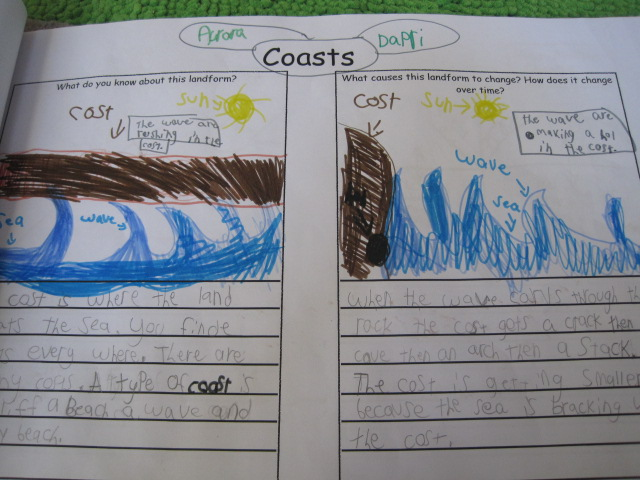 Aurora
Dapri
Coasts
What do you know about this landform?
cost
suny
the wave are
rushing in the
cost.
sea
wave
cost is where the land
the sea. You finde
every where. There are
costs. A type of coast is
a Beach a wave and
beach.
What causes this landform to change? How does it change
over time?
cost
sun
the wave are
making a hol
in the cost.
wave
sea
when the wave carvs through th
rock the cost gots a crack then
cave then an arch then a stack.
The cost is getting smaller
because the sea is bracking
the cost.